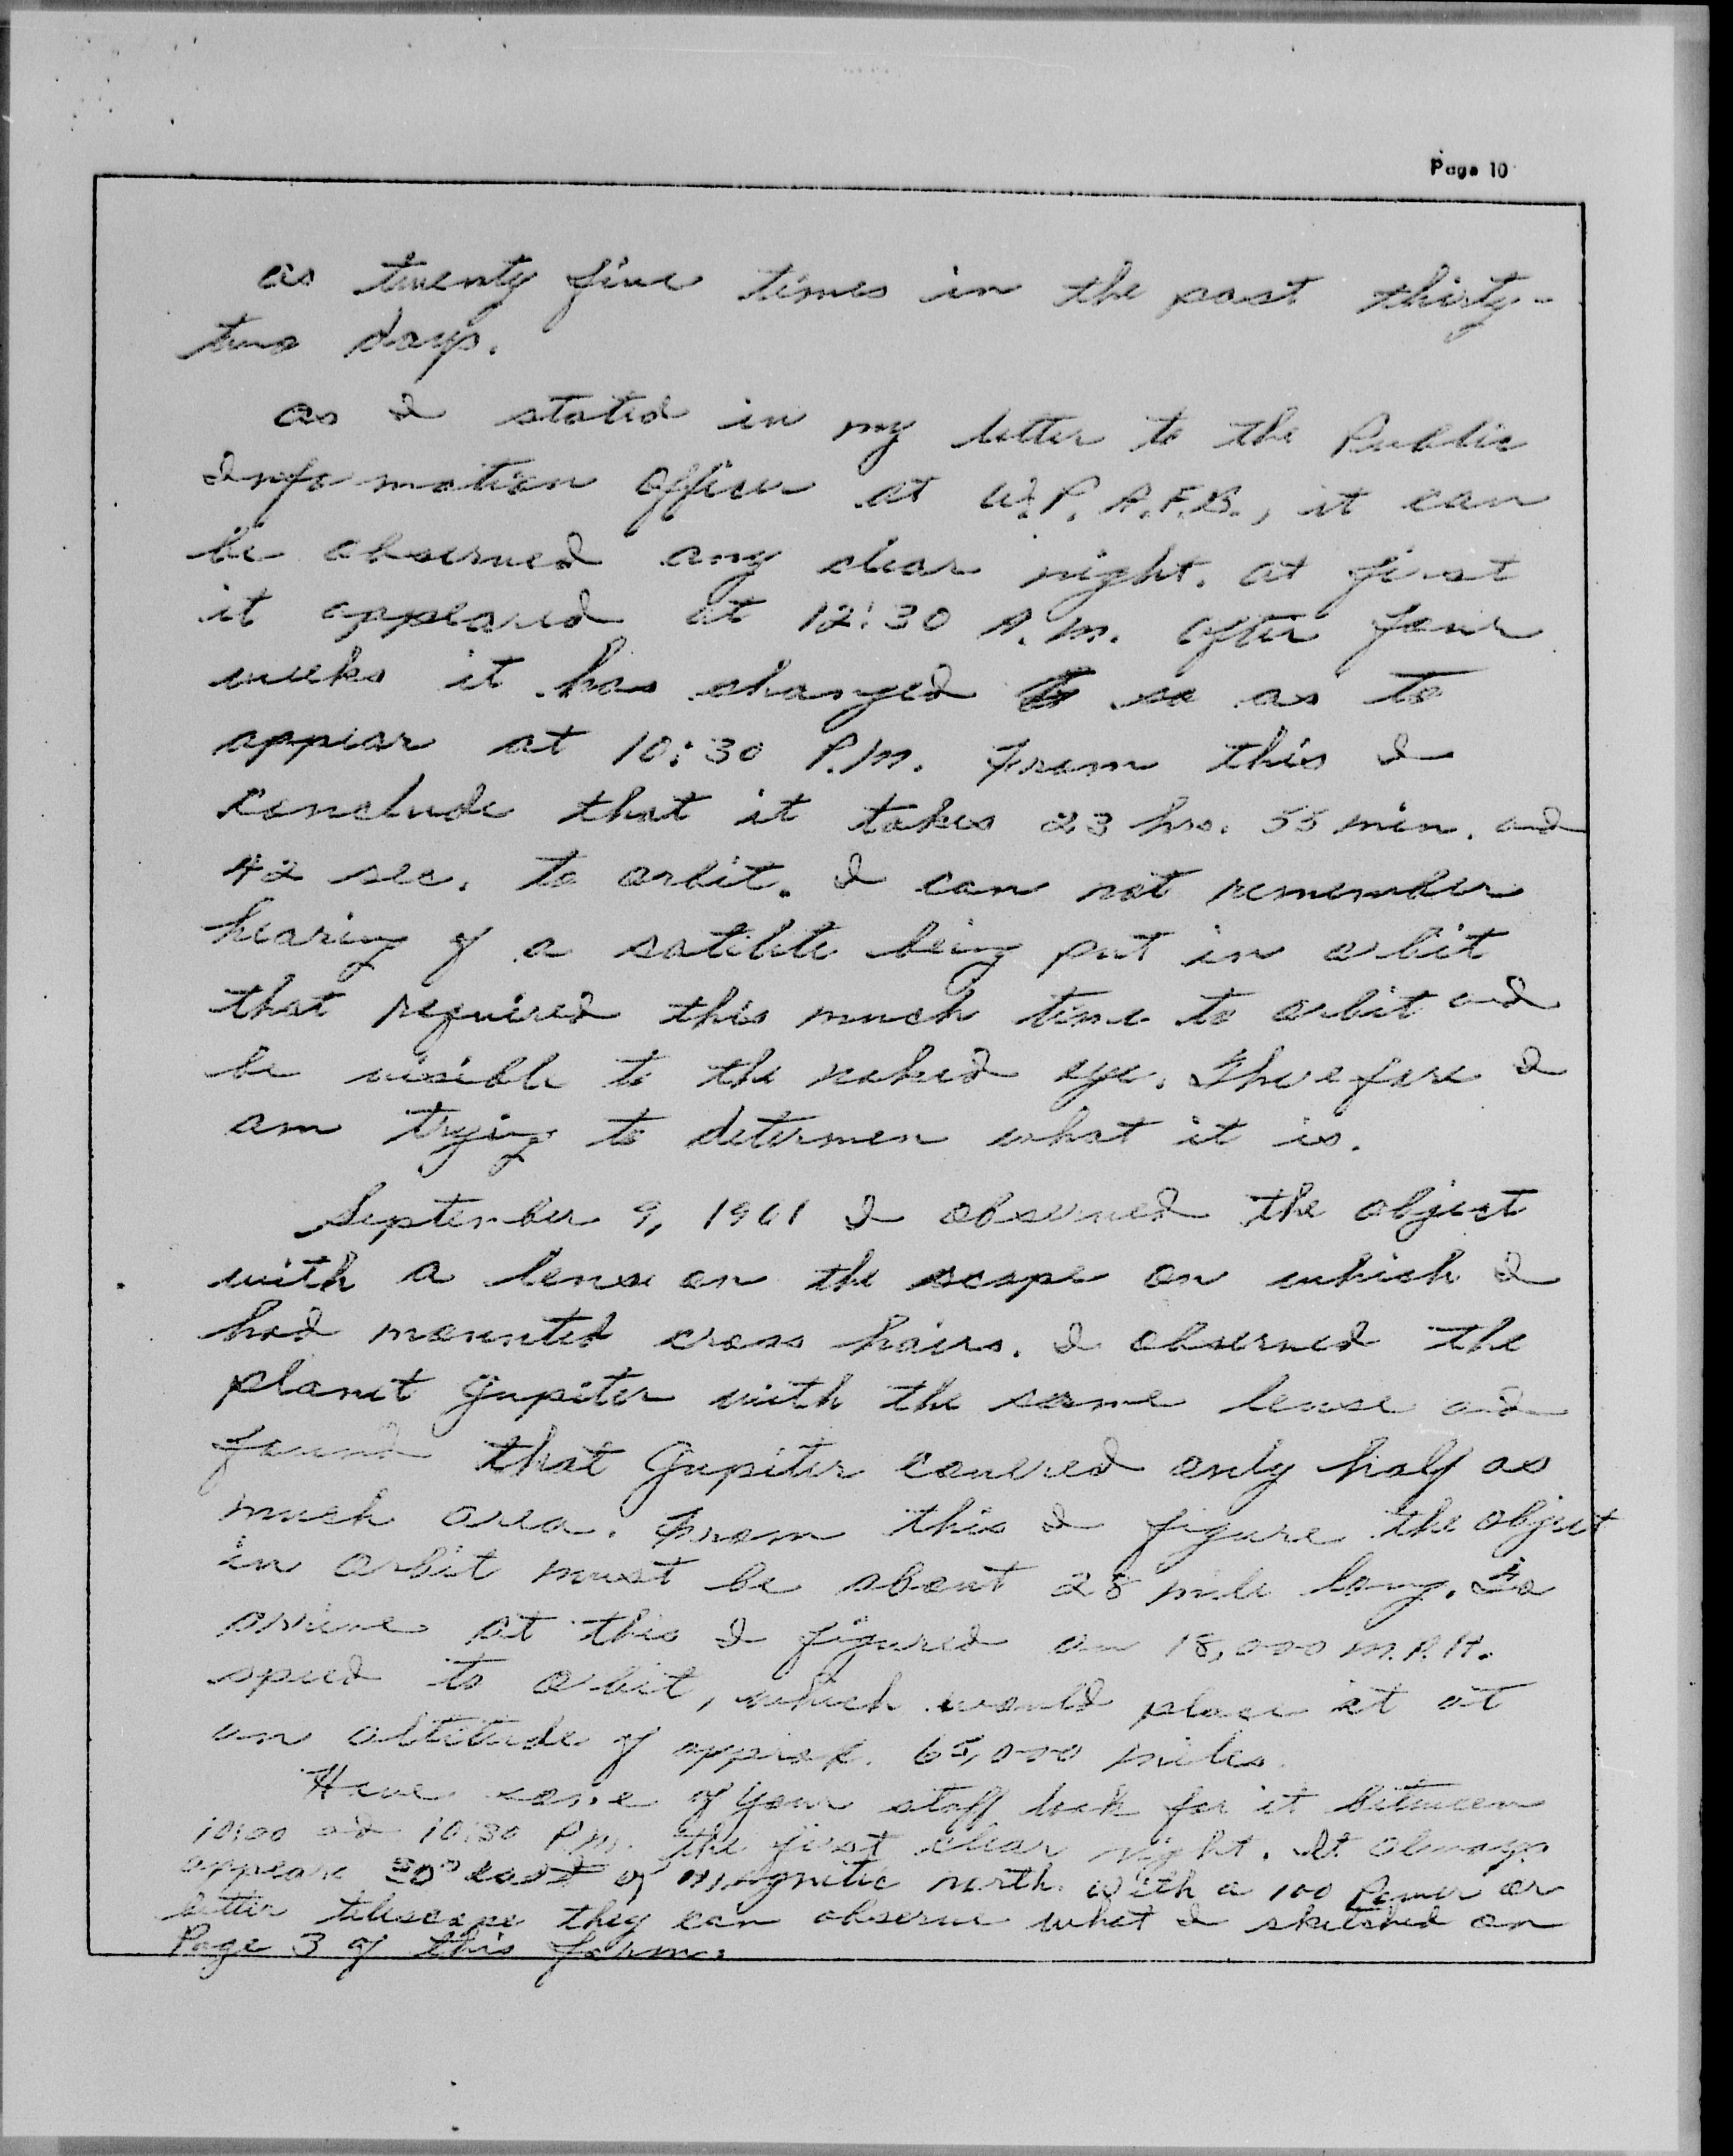 Page 10
as twenty five times in the past thirty-
two days.
as I stated in my letter to the Public
Information Officer at W.P. A.F.B., it can
be observed any clear night. at first
it appeared at 12:30 A.M. after four
weeks it has changed so as to
appear at 10:30 P.M. From this I
conclude that it takes 23 hrs. 55 min. and
42 sec. to orbit. I can not remember
hearing of a satilite being put in orbit
that required this much time to orbit and
be visible to the naked eye. Therefore I
am trying to determen what it is.
September 9, 1961 I observed the object
with a lense on the scope on which I
had mounted cross hairs. I observed the
planet Jupiter with the same lense and
found that Jupiter covered only half as
much area. From this I figure the object
in orbit must be about 28 mile long. To
arrive at this I figured an 18,000 M.P.H.
speed to orbit, which would place it at
an altitude of approx. 65,000 miles.
Have some of your staff look for it between
10:00 and 10:30 P.M. the first clear night. It always
appears 50° east of magnetic north. With a 100 Power or
better telescope they can observe what I sketched on
Page 3 of this form.